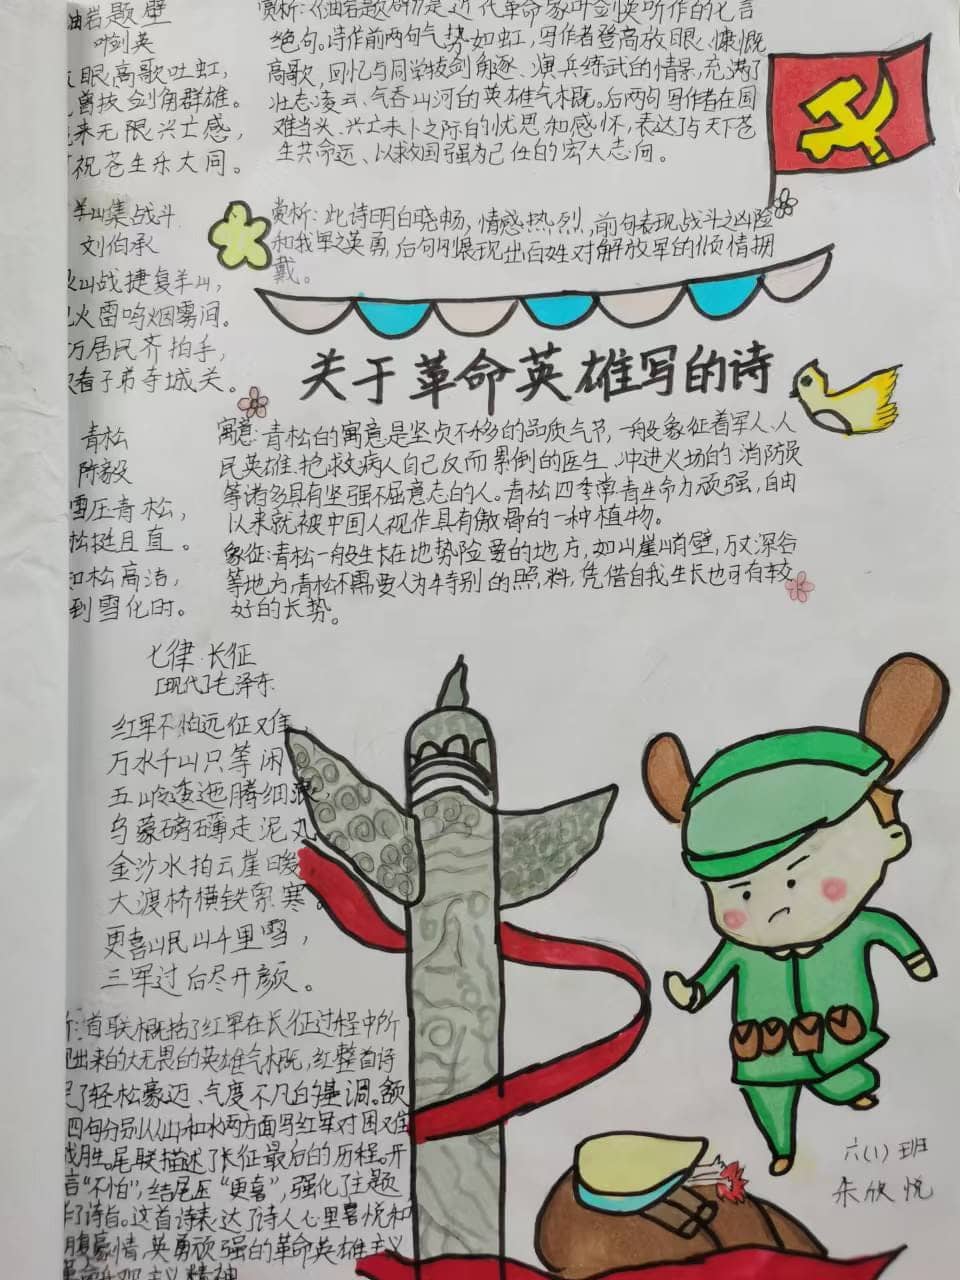 油岩题壁
叶剑英
眼高歌吐虹，
曾拔剑角群雄。
来无限兴亡感，
祝苍生乐大同。
赏析：《油岩题壁》是近代革命家叶剑英所作的七言
绝句。诗作前两句气势如虹，写作者登高放眼、慷慨
高歌，回忆与同学拔剑角逐、演兵练武的情景，充满了
壮志凌云、气吞山河的英雄气概。后两句写作者在国
难当头、兴亡未卜之际的忧思和感怀，表达了与天下苍
生共命运、以救国强为己任的宏大志向。
羊山集战斗
刘伯承
山战捷复羊山，
火雷鸣烟雾间。
万居民齐拍手，
看子弟夺城关。
赏析：此诗明白晓畅，情感热烈，前句表现战斗之凶险
和我军之英勇，后句则展现出百姓对解放军的倾情拥
戴。
关于革命英雄写的诗
青松
陈毅
雪压青松，
松挺且直。
知松高洁，
到雪化时。
寓意：青松的寓意是坚贞不移的品质气节，一般象征着军人、人
民英雄、抢救病人自己反而累倒的医生、冲进火场的消防员
等诸多具有坚强不屈意志的人。青松四季常青生命力顽强，自由
以来就被中国人视作具有傲骨的一种植物。
象征：青松一般生长在地势险要的地方，如山崖峭壁，万丈深谷
等地方，青松不需要人为特别的照料，凭借自我生长也可有较
好的长势。
七律·长征
[现代]毛泽东
红军不怕远征难，
万水千山只等闲
五岭逶迤腾细浪，
乌蒙磅礴走泥丸
金沙水拍云崖暖
大渡桥横铁索寒。
更喜岷山千里雪，
三军过后尽开颜。
析：首联概括了红军在长征过程中所
现出来的大无畏的英雄气概，红整首诗
了轻松豪迈、气度不凡的基调。颔
四句分别从山和水两方面写红军对困难
战胜。尾联描述了长征最后的历程。开
言“不怕”，结尾压“更喜”，强化了主题，
了诗旨。这首诗表达了诗人心里喜悦和
豪情，英勇顽强的革命英雄主义
革命乐观主义精神
六（1）班
朱欣悦